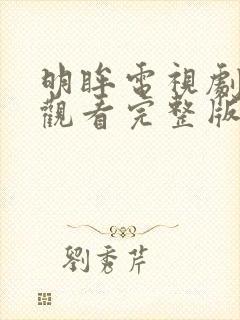 明眸電視劇
觀看完整版
劉秀芹